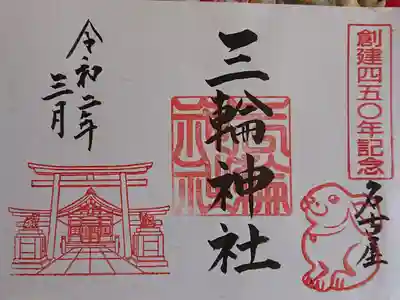 創建四五〇年記念
名古屋
三輪神社
三輪神社
令和二年
三月